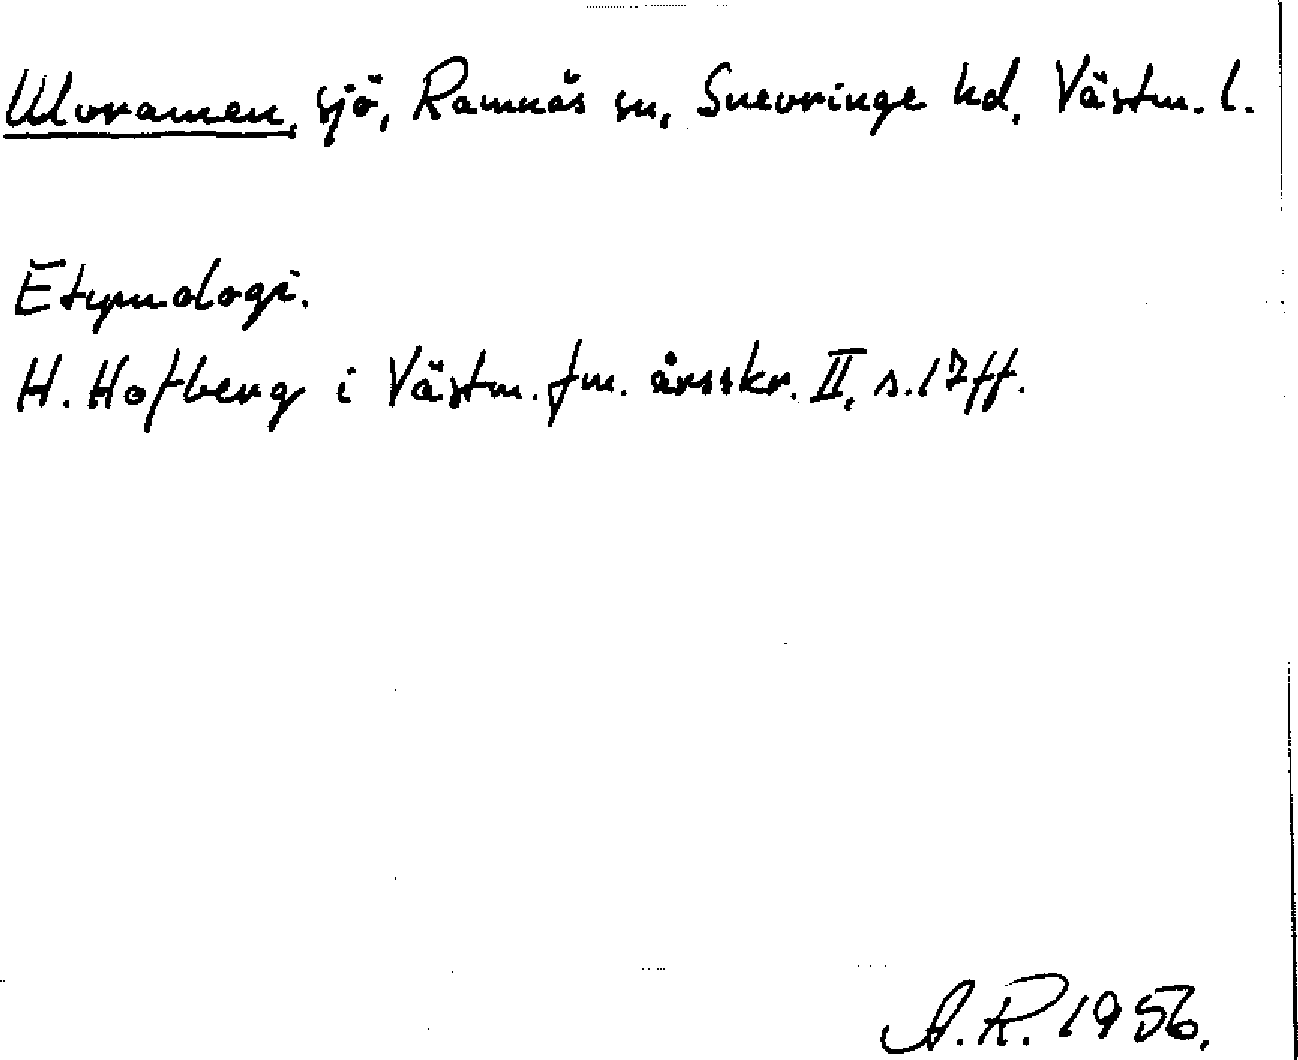 Uloramen, sjö, Ramnäs sn, Snevringe hd, Västm. l.
Etymologi.
H. Hofberg i Västm. fm. årsskr. II, s. 17 ff.
A.R. 1956.